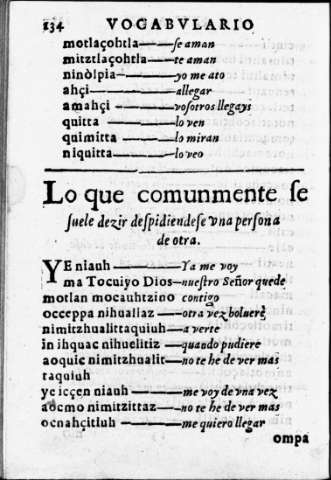 134 VOCABVLARIO
motlaçohtla——ſe aman
mitztlaçohtla——te aman
ninòlpia——yo me ato
ahçi——allegar
amahçi——voſotros llegays
quitta——lo ven
quimitta——lo miran
niquitta——lo veo
Lo que comunmente ſe
ſuele dezir deſpidiendeſe vna perſona
de otra.
YE niauh——Ya me voy
ma Tocuiyo Dios—nueſtro Señor quede
motlan mocauhtzino contigo
occeppa nihuallaz——otra vez boluerè
nimitzhualittaquiuh—a verte
in ihquac nihuelitiz——quando pudiere
aoquic nimitzhualit—no te he de ver mas
taquiuh
ye icçen niauh——me voy de vna vez
aocmo nimitzittaz——no te he de ver mas
ocnahçitiuh——me quiero llegar
ompa